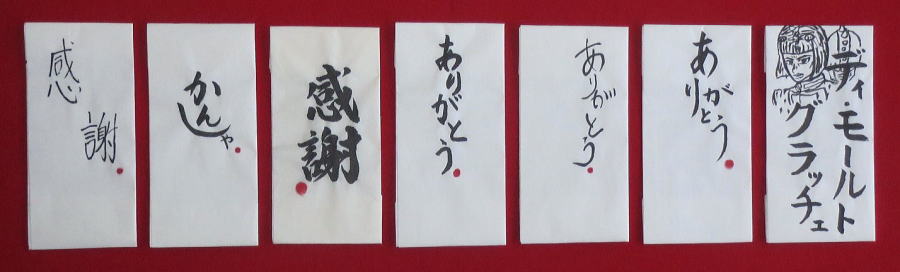 感謝
かんしゃ
感謝
ありがとう
ありがとう
ありがとう
ディ・モールト
グラッチェ